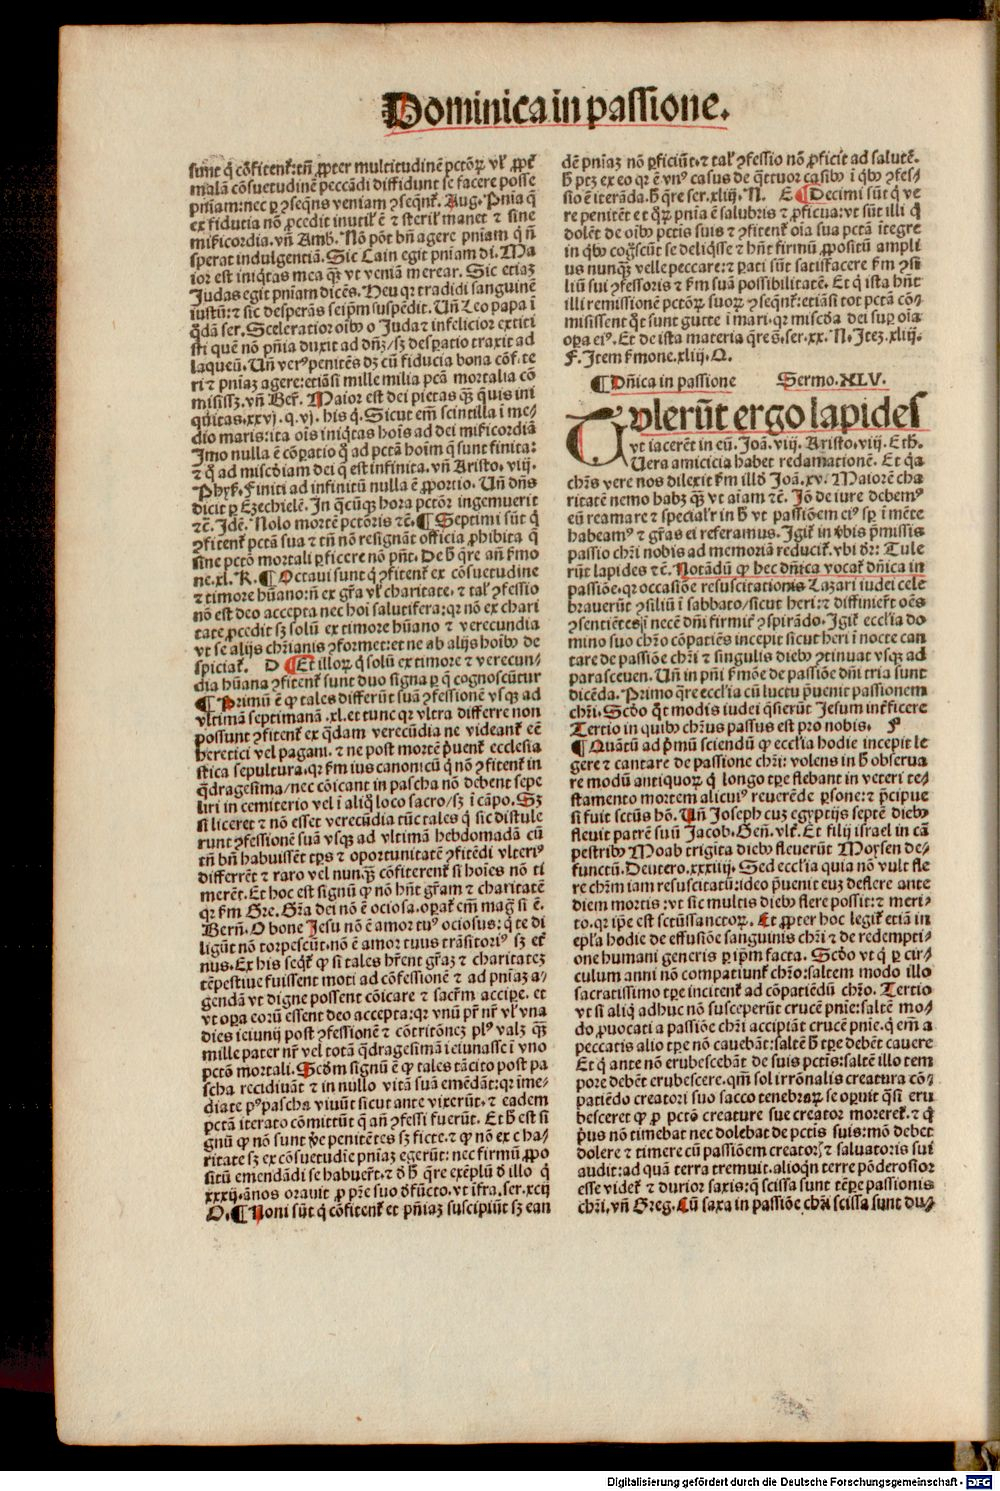 Dominica in passione.
sunt q̇ cõfitent᷑: tñ ꝓpter multitudinẽ pctõꝝ vl᷑ ꝓpt᷑
malã cõsuetudinẽ peccãdi diffidunt se facere posse
pñiam: nec ꝑ ꝯseq̃ns veniam ꝯseqnt᷑. Aug. Pnia q̃
ex fiducia nõ ꝓcedit inutil᷑ ẽ ⁊ steril᷑ manet ⁊ sine
mĩcordia. vñ Amb. Nõ põt bñ agere pniam q̇ ñ
sperat indulgentiã. Sic Cain egit pniam di. Ma
ior est iniq̃tas mea q̃ꝫ vt veniã merear. Sic etiaꝫ
Judas egit pniam dicẽs. Heu qꝛ tradidi sanguinẽ
iustũ: ⁊ sic desperãs seip̃m suspẽdit. Uñ Leo papa ĩ
q̃dã ser. Sceleratior oĩbꝰ o Juda ⁊ infelicior extiti
sti quẽ nõ pñia duxit ad dñꝫ/ sꝫ despatio traxit ad
laqueũ. Uñ verꝰ penitẽs dꝫ cũ fiducia bona cõf. te
ri ⁊ pniaꝫ agere: etiãsi mille milia pcã mortalia cõ
misissꝫ. vñ Ber̃. Maior est dei pietas q̃ꝫ quis ini
quitas. xxvj. q. vj. his q̇. Sicut em̃ scintilla ĩ me/
dio maris: ita oĩs iniq̃tas hoĩs ad dei mĩcordiã
Imo nulla ẽ cõpatio q̇ ad pctã hoĩm q̇ sunt finita:
⁊ q̇ ad miscd̃iam dei q̇ est infinita. vñ Aristo. viij.
Phyẜ. Finiti ad infinitũ nulla ẽ ꝓportio. Uñ dñs
dicit ꝑ Ezechielẽ. In q̃cũqꝫ hora pctõr ingemuerit
⁊cẽ. Idẽ. Nolo mortẽ pctõris ⁊cẽ. ¶ Septimi sũt q̇
ꝯfitent᷑ pctã sua ⁊ tñ nõ resignãt officia ꝓhibita q̇
sine pctõ mortali ꝑficere nõ pñt. De h̃ q̃re añ ẜmo
ne. xl. K. ¶ Octavi sunt q̇ ꝯfitent᷑ ex cõsuetudine
⁊ timore hũano: ñ ex gr̃a vl᷑ charitate. ⁊ tal᷑ ꝯfessio
nõ est deo accepta nec hoĩ salutifera: qꝛ nõ ex chari
tate ꝓcedit sꝫ solũ ex timore hũano ⁊ verecundia
vt se alijs chr̃ianis ꝯformet: et ne ab alijs hoĩbꝰ de
spiciat᷑. D ¶ Et illoꝝ q̇ solũ ex timore ⁊ verecun/
dia hũana ꝯfitent᷑ sunt duo signa ꝑ q̇ cognoscũtur
¶ Primũ ẽ ꝙ tales differũt suã ꝯfessionẽ vsqꝫ ad
vltimã septimanã. xl. et tunc qꝛ vltra differre non
possunt ꝯfitent᷑ ex q̃dam verecũdia ne videant᷑ eẽ
heretici vel pagani. ⁊ ne post mortẽ p̃uent᷑ ecclesia
stica sepultura. qꝛ ẜm ius canonicũ q̇ nõ ꝯfitent᷑ in
q̃dragesima/ nec cõicant in pascha nõ debent sepe
liri in cemiterio vel ĩ aliq̃ loco sacro/ sꝫ ĩ cãpo. Sꝫ
si liceret ⁊ nõ esset verecũdia tũc tales q̇ sic distule
runt ꝯfessionẽ suã vsqꝫ ad vltimã hebdomadã cũ
tñ bñ habuissẽt tp̃s ⁊ oportunitatẽ ꝯfitẽdi vlteriꝰ
differrẽt ⁊ raro vel nunq̃ꝫ cõfiterent᷑ si hoĩes nõ ti
merẽt. Et hoc est signũ ꝙ nõ hñt gr̃am ⁊ charitatẽ
qꝛ ẜm Gre. Gr̃a dei nõ ẽ ociosa. opat᷑ em̃ mag̃ si ẽ.
Bern̄. O bone Jesu nõ ẽ amor tuꝰ ociosus: q̇ te di
ligũt nõ torpescũt. nõ ẽ amor tuus trãsitoriꝰ sꝫ et᷑
nus. Ex his seq̃t᷑ ꝙ si tales hr̃ent gr̃aꝫ ⁊ charitateꝫ
tẽpestive fuissent moti ad cõfessionẽ ⁊ ad pniaꝫ a/
gendã vt digne possent cõicare ⁊ sacr̃m accipe. et
vt opa eorũ essent deo accepta: qꝛ vnũ pr̃ nr̃ vl᷑ vna
dies ieiunij post ꝯfessionẽ ⁊ cõtritõneꝫ plꝰ valꝫ q̃ꝫ
mille pater nr̃ vel totã q̃dragesimã ieiunasse ĩ vno
pctõ mortali. Scd̃m signũ ẽ ꝙ tales tãcito post pa
scha recidiuãt ⁊ in nullo vitã suã emẽdãt: qꝛ ime/
diate pꝰ pascha viuũt sicut ante vixerũt. ⁊ eadem
pctã iterato cõmittũt q̇ añ ꝯfessi fuerũt. Et h̃ est si
gnũ ꝙ nõ sunt ṽe penitẽtes sꝫ ficte. ⁊ ꝙ nõ ex cha/
ritate sꝫ ex cõsuetudĩe pniaꝫ egerũt: nec firmũ ꝓpo
sitũ emendãdi se habuer̃t. ⁊ d̃ h̃ q̃re exẽplũ d̃ illo q̇
xxxij. ãnos orauit ꝓ pr̃e suo d̃fũcto. vt ĩfra. ser. xcij
O. ¶ Noni sũt q̇ cõfitent᷑ et pñiaꝫ suscipiũt sꝫ ean
dẽ pniaꝫ nõ ꝑficiũt. ⁊ tal᷑ ꝯfessio nõ ꝓficit ad salutẽ.
h̃ ptꝫ ex eo qꝛ ẽ vnꝰ casus de q̃ttuor casibꝰ ĩ q̇bꝰ ꝯfes/
sio ẽ iterãda. h̃ q̃re ser. xliij. N. E ¶ Decimi sũt q̇ ve
re penitẽt et q̇ꝝ pnia ẽ salubris ⁊ ꝓficua: vt sũt illi q̇
dolẽt de oĩbꝰ pctis suis ⁊ ꝯfitent᷑ oĩa sua pctã ĩtegre
in q̇bꝰ cog̃scũt se deliq̃sse ⁊ hñt firmũ ꝓpositũ ampli
us nunq̃ꝫ velle peccare: ⁊ pati sũt satisfacere ẜm ꝯsi
liũ sui ꝯfessoris ⁊ ẜm suã possibilitatẽ. Et q̇ ista hñt
illi remissionẽ pctõꝝ suoꝝ ꝯseqnt᷑: etiãsi tot pctã cõ/
misissent q̃t sunt gutte ĩ mari. qꝛ miscd̃a dei suꝑ oĩa
opa eiꝰ. Et de ista materia q̃re s̃. ser. xx. N. Iteꝫ. xliij.
F. Item ẜmone. xliij. Q.
¶ Dñica in passione Sermo. XLV.
Tvlerũt ergo lapides
vt iacerẽt in eũ. Joã. viij. Aristo. viij. Eth.
Uera amicicia habet redamationẽ. Et q̃a
chr̃s vere nos dilexit ẜm illd̃ Joã. xv. Maiorẽ cha
ritatẽ nemo habꝫ q̃ꝫ vt aĩam ⁊cẽ. Jõ de iure debemꝰ
eũ reamare ⁊ special᷑r in h̃ vt passiõem eiꝰ sp̃ ĩ mẽte
habeamꝰ ⁊ gr̃as ei referamus. Igit᷑ in ṽbis p̃missis
passio chr̃i nobis ad memoriã reducit᷑. vbi d̃r: Tule
rũt lapides ⁊cẽ. Notãdũ ꝙ hec dñica vocat᷑ dñica in
passiõe. qꝛ occasiõe resuscitationis Lazari iudei cele
brauerũt ꝯsiliũ ĩ sabbato/ sicut heri: ⁊ diffinier̃t oẽs
ꝯsentiẽtes ĩ necẽ dñi firmit᷑ ꝯspirãdo. Igit᷑ eccl̃ia do
mino suo chr̃o cõpatiẽs incepit sicut heri ĩ nocte can
tare de passiõe chr̃i ⁊ singulis diebꝰ ꝯtinuat vsqꝫ ad
parasceuen. Uñ in pñi ẜmõe de passiõe dñi tria sunt
dicẽda. Primo q̃re eccl̃ia cũ luctu p̃uenit passionem
chr̃i. Scd̃o q̃t modis iudei q̃sierũt Jesum int᷑ficere
Tertio in quibꝰ chr̃us passus est pro nobis. F
¶ Quãtũ ad p̃mũ sciendũ ꝙ eccl̃ia hodie incepit le
gere ⁊ cantare de passione chr̃i: volens in h̃ observa
re modũ antiquoꝝ q̇ longo tp̃e flebant in veteri te/
stamento mortem alicuiꝰ reuerẽde ꝑsone: ⁊ p̃cipue
si fuit sctũs hõ. Uñ Joseph cuꝫ egyptijs septẽ diebꝰ
fleuit patrẽ suũ Jacob. Geñ. vlt᷑. Et filij israel in cã
pestribꝰ Moab trigita diebꝰ fleuerũt Moysen de/
functũ. Deutero. xxxiiij. Sed eccl̃ia quia nõ vult fle
re chr̃m iam resuscitatũ: ideo p̃uenit euꝫ deflere ante
diem mortis: vt sic multis diebꝰ flere possit: ⁊ meri/
to. qꝛ ip̃e est sctũssanctoꝝ. Et ꝓpter hoc legit᷑ etiã in
epl̃a hodie de effusiõe sanguinis chr̃i ⁊ de redempti/
one humani generis ꝑ ip̃m facta. Scd̃o vt q̇ ꝑ cir/
culum anni nõ compatiunt᷑ chr̃o: saltem modo illo
sacratissimo tp̃e incitent᷑ ad cõpatiẽdũ chr̃o. Tertio
vt si aliq̇ adhuc nõ susceperũt crucẽ pnie: saltẽ mo/
do ꝓuocati a passiõe chr̃i accipiãt crucẽ pnie. q̇ em̃ a
peccatis alio tp̃e nõ cauebãt: saltẽ h̃ tp̃e debẽt cauere
Et q̇ ante nõ erubescebãt de suis pctis: saltẽ illo tem
pore debẽt erubescere. qm̃ sol irrõnalis creatura cõ/
patiẽdo creatori suo sacco tenebraꝝ se opuit q̃si eru
besceret ꝙ ꝓ pctõ creature sue creator moreret᷑. ⁊ q̇
p̃us nõ timebat nec dolebat de pctis suis: mõ debet
dolere ⁊ timere cũ passiõem creatoris ⁊ saluatoris sui
audit: ad quã terra tremuit. alioqn terre põderosior
esse videt᷑ ⁊ durior saxis: q̇ scissa sunt tẽpe passionis
chr̃i. vñ Greg. Cũ saxa in passiõe chr̃i scissa sunt du/
Digitalisierung gefördert durch die Deutsche Forschungsgemeinschaft - DFG